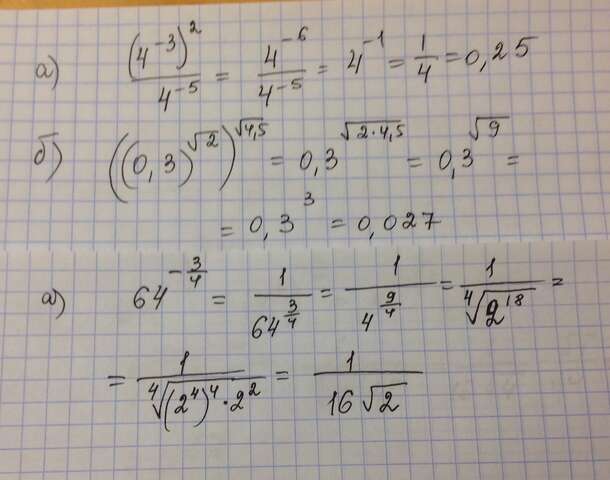 а) (4^-3)^2 / 4^-5 = 4^-6 / 4^-5 = 4^-1 = 1/4 = 0,25
б) ((0,3)^√2)^√4,5 = 0,3^√2·4,5 = 0,3^√9 =
= 0,3^3 = 0,027
а) 64^-3/4 = 1 / 64^3/4 = 1 / 4^9/4 = 1 / ⁴√2^18 =
= 1 / ⁴√(2^4)^4·2^2 = 1 / 16√2